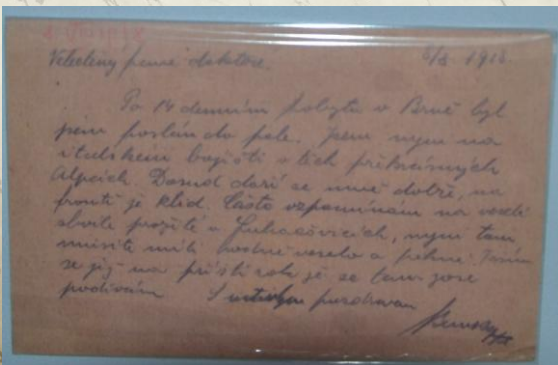 Velectěný pane doktore. 8/8. 1918.
Po 14 denním pobytu v Brně byl
jsem poslán do pole. Jsem nyní na
italském bojišti v těch překrásných
Alpách. Dosud daří se mně dobře, na
frontě je klid. Často vzpomínám na veselé
chvíle prožité v Luhačovicích, nyní tam
musíte míti hodně veselo a pěkně. Těším
se již na příští rok že se tam zase
podívám S uctivým pozdravem